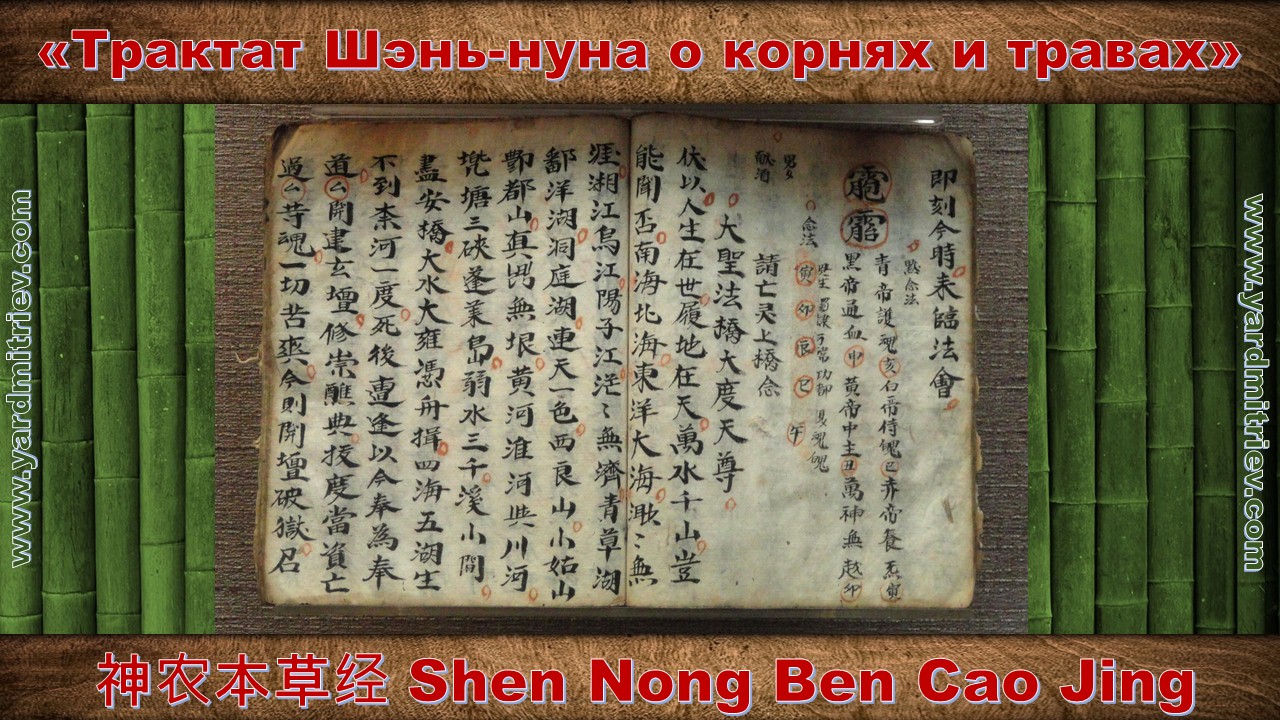 «Трактат Шэнь-нуна о корнях и травах»
www.yardmitriev.com
即刻今時来臨法會
黙念法
青帝護魂亥白帝侍魄巳赤帝養炁寅
黑帝通血申黄帝中主丑萬神無越卯
念法
寅卯辰巳午
男女
請亡灵上橋念
大聖法橋大度天尊
伏以人生在世履地在天萬水千山豈
能闻否南海北海東洋大海渺〻無
涯湘江烏江陽子江茫〻無濟青草湖
鄱洋湖洞庭湖連天一色西良山小姑山
酆都山真無垠黄河淮河共川河
塘三硤蓬莱島弱水三千溪小澗
盡安橋大水大雍憑舟揖四海五湖生
不到柰河一度死後亶逢以今奉為奉
道厶開建玄壇修崇醮典拔度當資亡
過厶昔魂一切苦爽今則開壇破獄召
www.yardmitriev.com
神农本草经 Shen Nong Ben Cao Jing